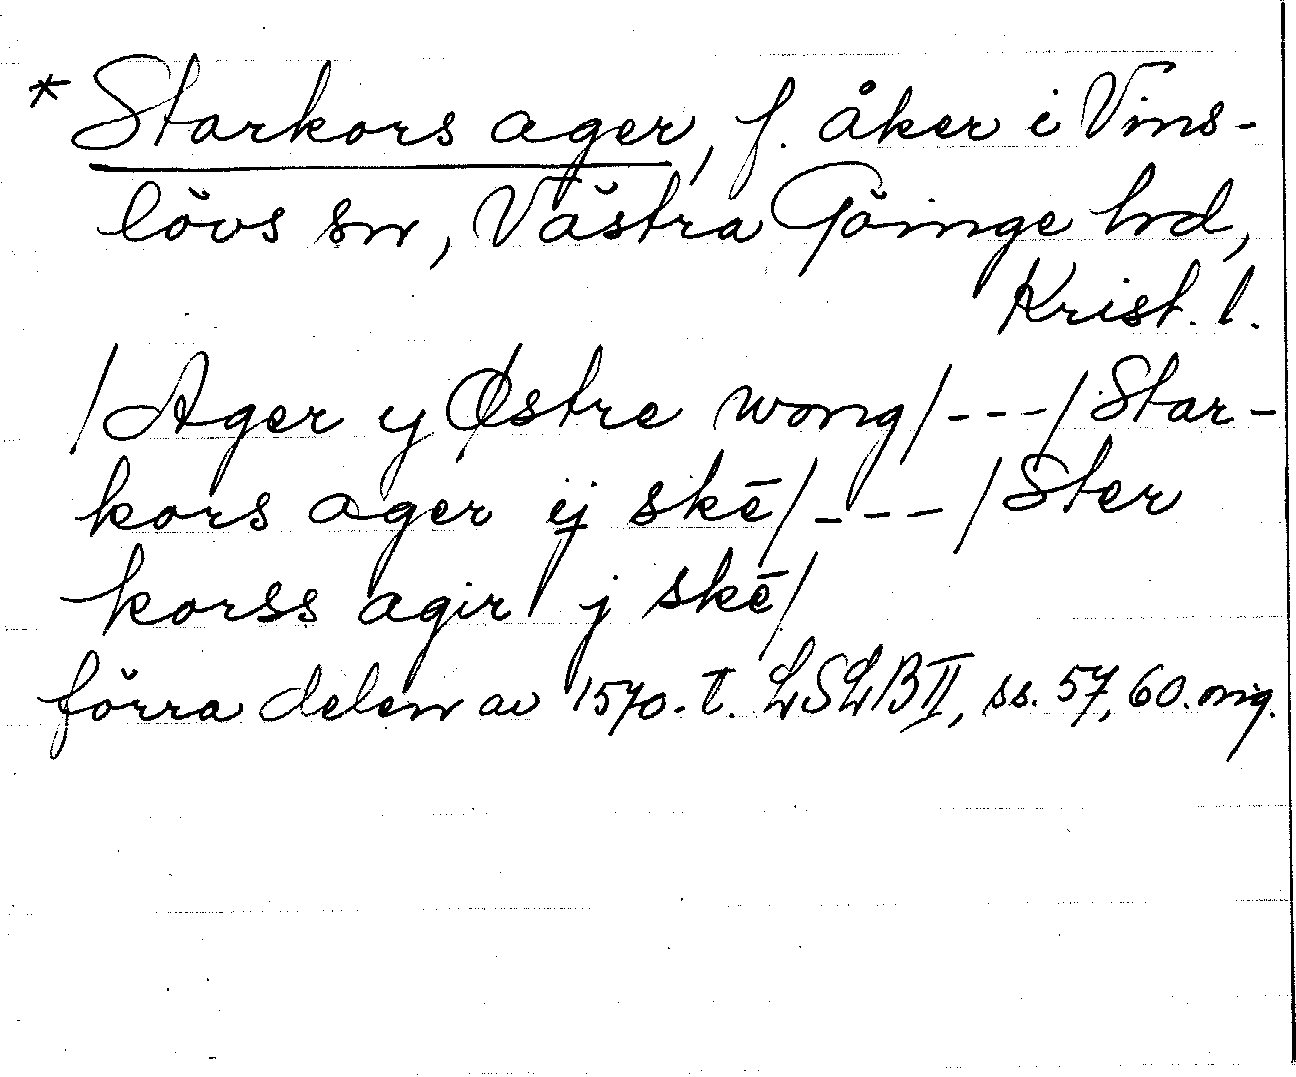 * Starkors ager, f. åker i Vins-
lövs sn, Västra Göinge hd,
Krist. l.
/Ager y Østre wong/---/Star-
kors ager ij skē/---/Ster
korss agir j skē/
förra delen av 1570-t. LSLB II, ss. 57, 60. orig.